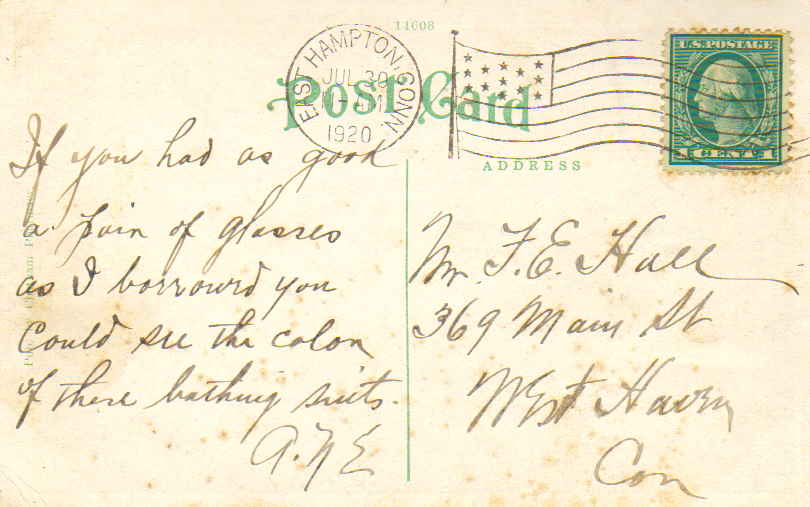 14608
EAST HAMPTON, CONN.
JUL 30
1920
Post Card
U.S. POSTAGE
1 CENT 1
ADDRESS
If you had as good
a pair of glasses
as I borrowed you
Could see the color
of there bathing suits.
Mr. F. E. Hall
369 Main St
West Haven
Con